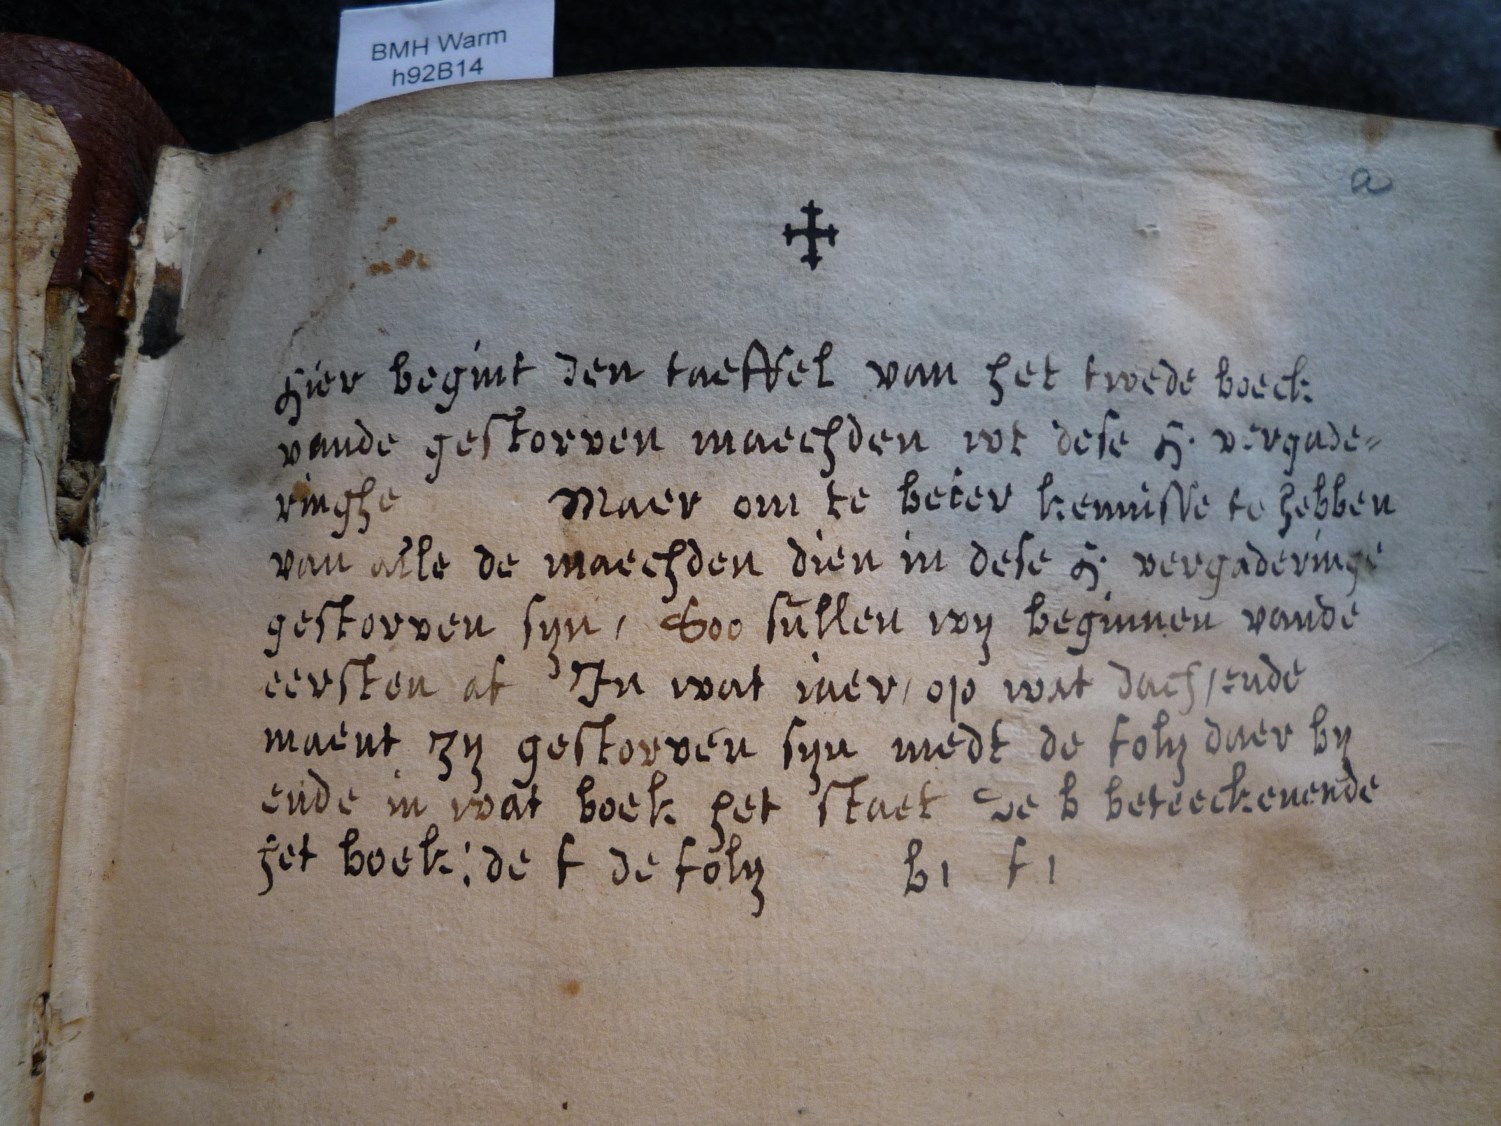 BMH Warm
h92B14
a
Hier begint den taeffel van het twede boeck
vande gestorven maechden wt dese H. vergade=
ringhe Maer om te beter kennisse te hebben
van alle de maechden dien in dese H. vergaderinge
gestorven syn / Soo sullen wy beginnen vande
eersten af In wat iaer / op wat dach / ende
maent zy gestorven syn medt de foly daer by
ende in wat boek het staet De b beteeckenende
het boek: de f de foly b1 f1